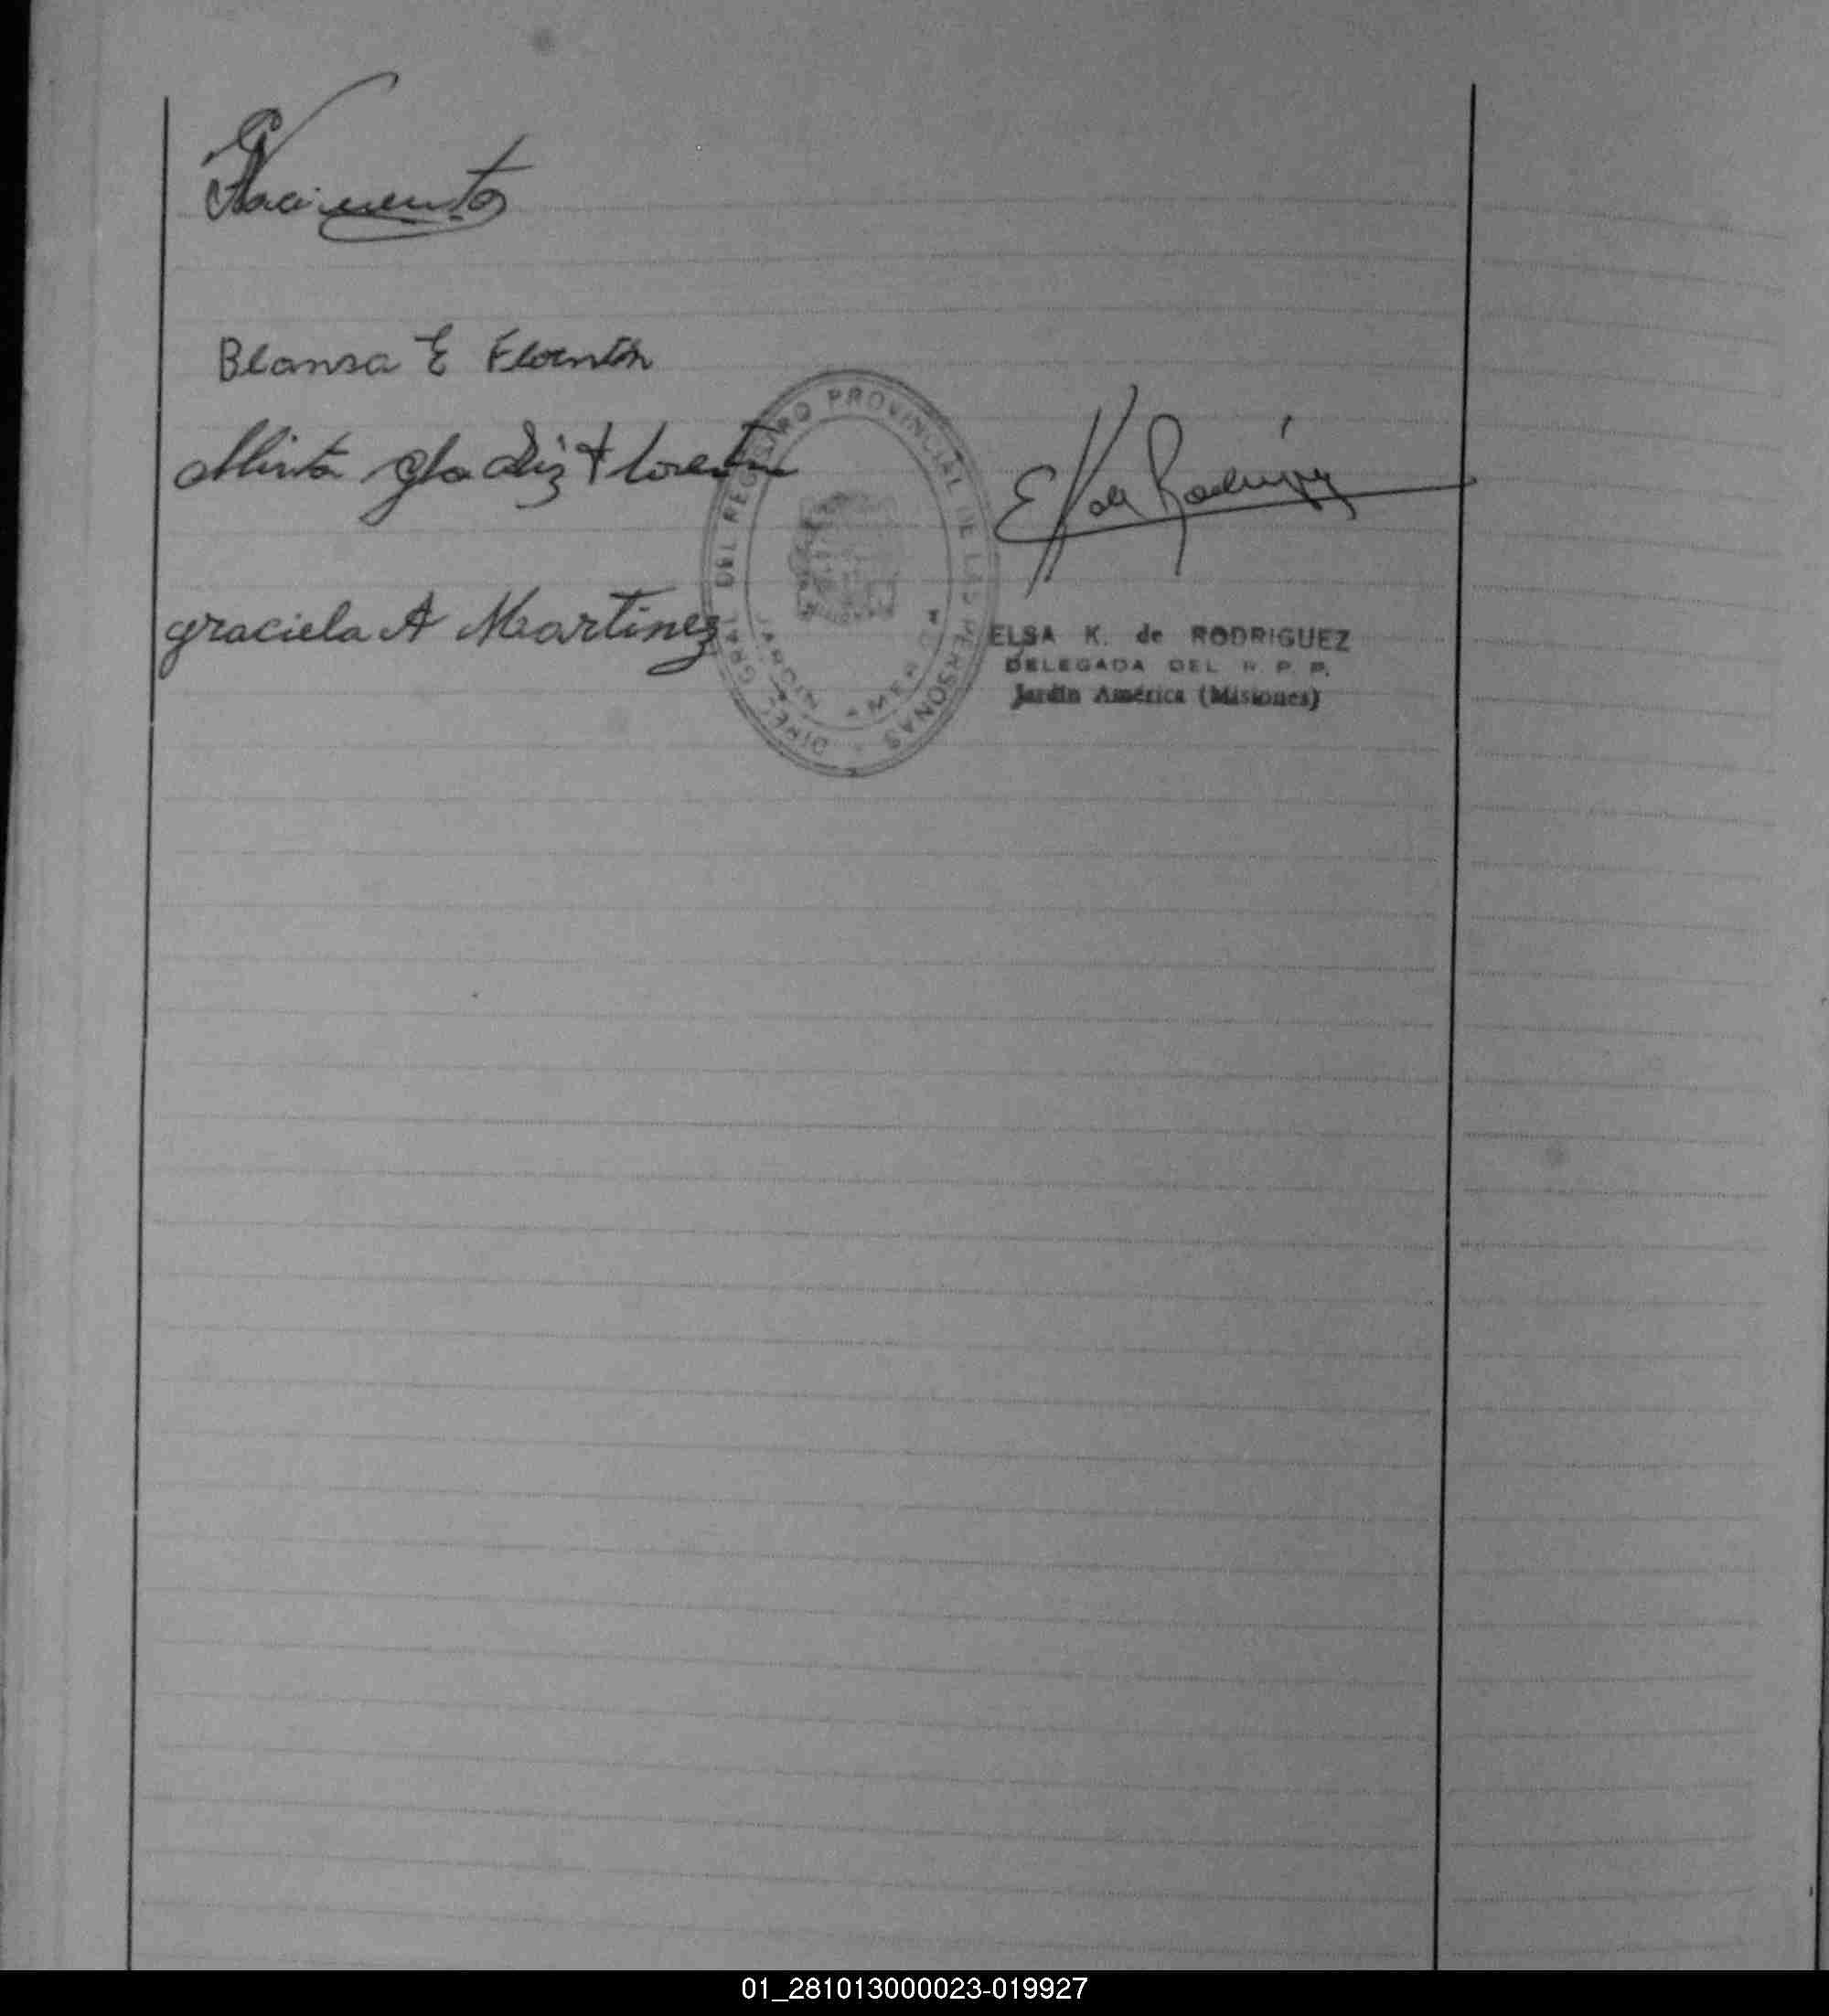 Nacimento
Blansa E Florentin
Mirta Gladiz Florentin
graciela A Martinez
DIREC. GRAL. DEL REGISTRO PROVINCIAL DE LAS PERSONAS
JARDIN AMERICA
E K de Rodriguez
ELSA K. de RODRIGUEZ
DELEGADA DEL R. P. P.
Jardín América (Misiones)
01_281013000023-019927